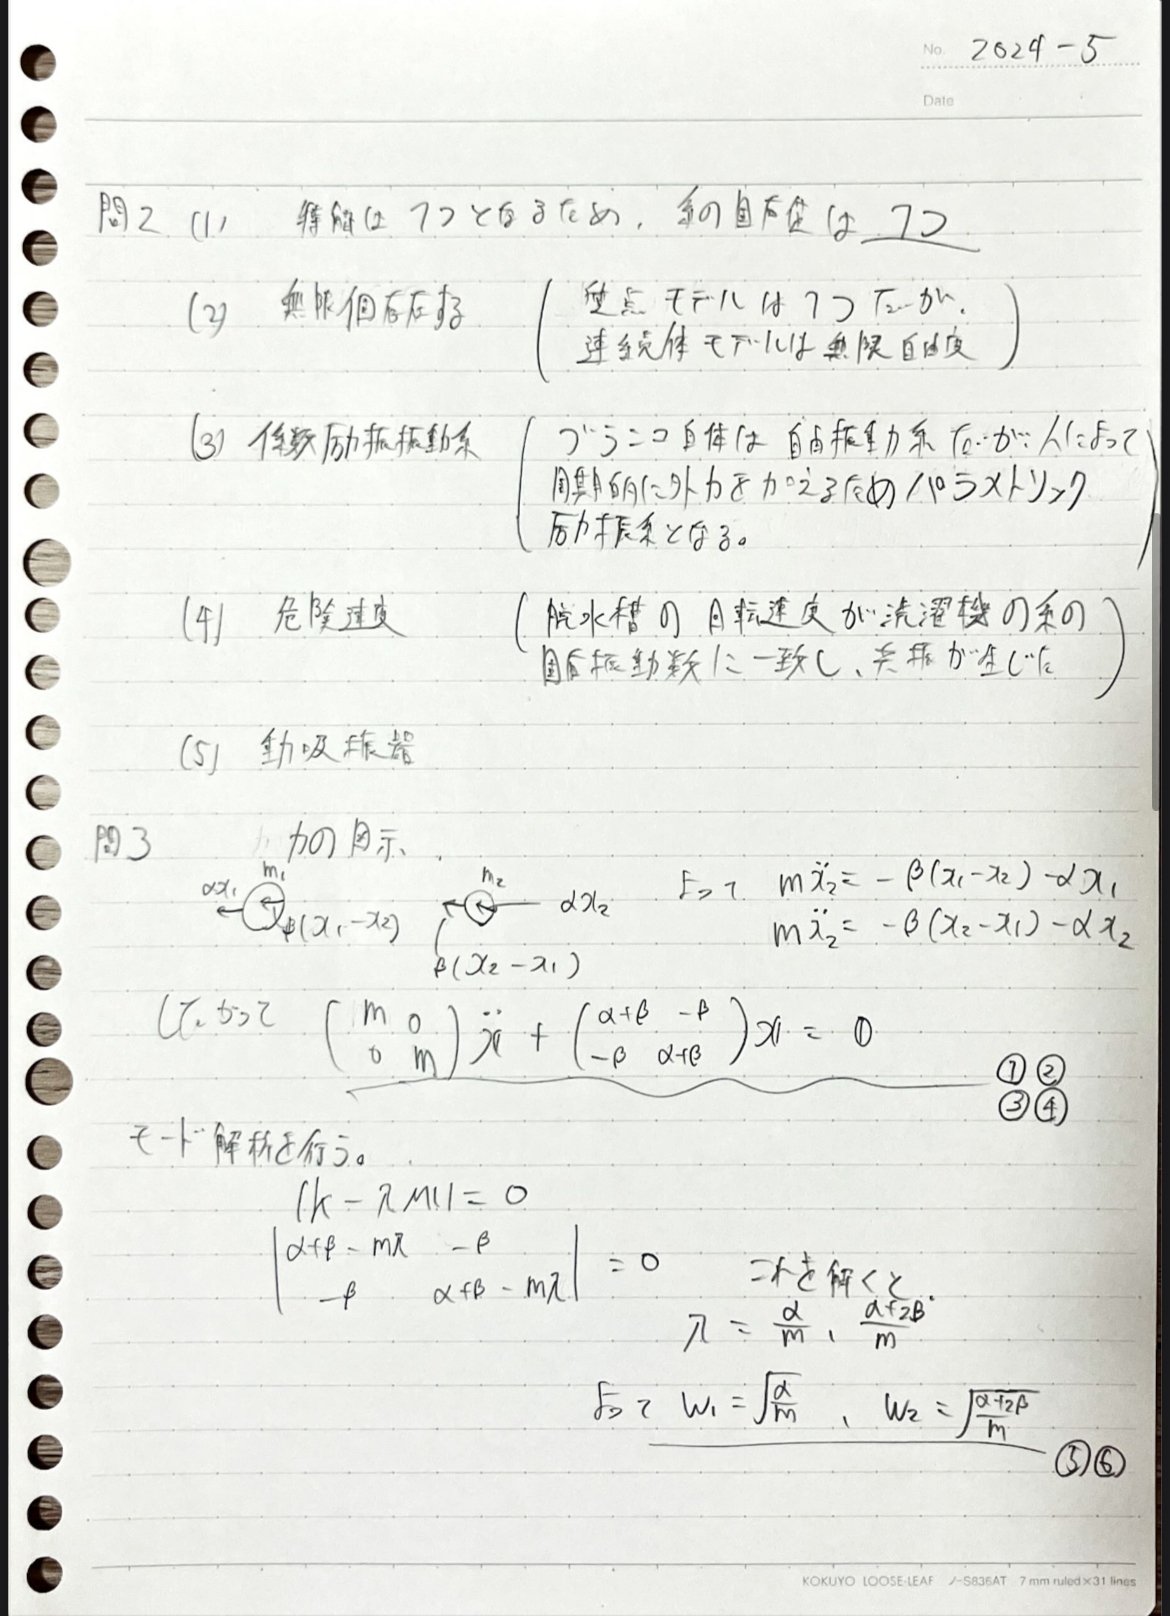 No. 2024-5
Date
問2 (1) 特解は1つとなるため、系の自由度は 1つ
(2) 無限個存在する (質点モデルは1つだが、
連続体モデルは無限自由度)
(3) 係数励振振動系 (ブランコ自体は自由振動系だが、人によって
周期的に外力を加えるためパラメトリック
励振系となる。)
(4) 危険速度 (脱水槽の回転速度が洗濯機の系の
固有振動数に一致し、共振が生じた)
(5) 動吸振器
問3 力の図示、
αx₁ m₁ β(x₁-x₂) m₂ αx₂ β(x₂-x₁)
よって mẍ₂ = -β(x₁-x₂) -αx₁
mẍ₂ = -β(x₂-x₁) -αx₂
したがって (m 0 / 0 m) ẍ + (α+β -β / -β α+β) x = 0
① ②
③ ④
モード解析を行う。
|K - λM| = 0
|α+β-mλ -β / -β α+β-mλ| = 0 これを解くと、
λ = α/m 、 (α+2β)/m
よって ω₁ = √(α/m) 、 ω₂ = √((α+2β)/m)
⑤⑥
KOKUYO LOOSE-LEAF ノ-S836AT 7 mm ruled×31 lines